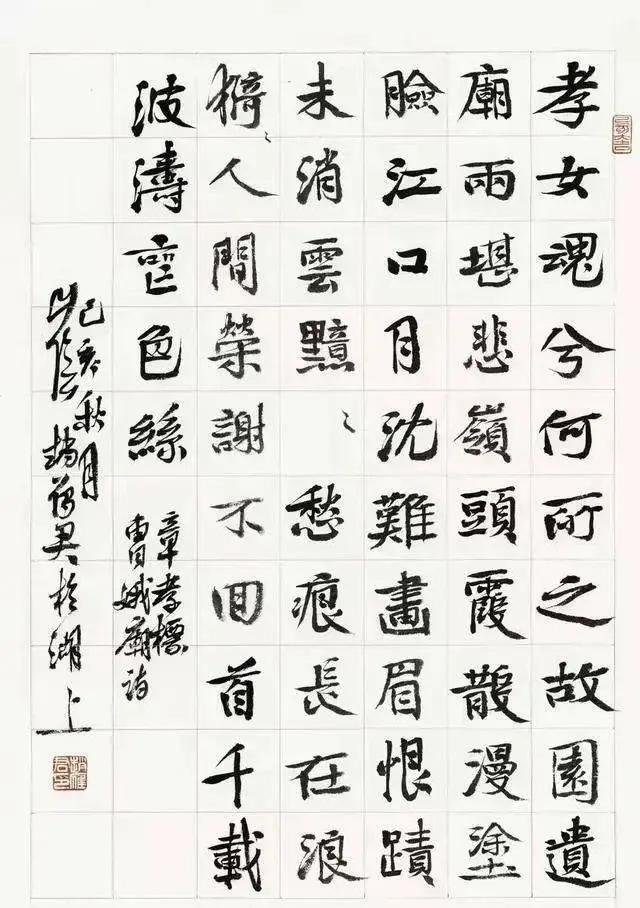 孝女魂兮何所之故園遺
廟雨堪悲嶺頭霞散漫塗
臉江口月沈難畫眉恨蹟
未消雲黯々愁痕長在浪
漪々人間榮謝不回首千載
波濤色絲
章孝標
曹娥廟詩
己亥秋月
山陰趙雁君於湖上